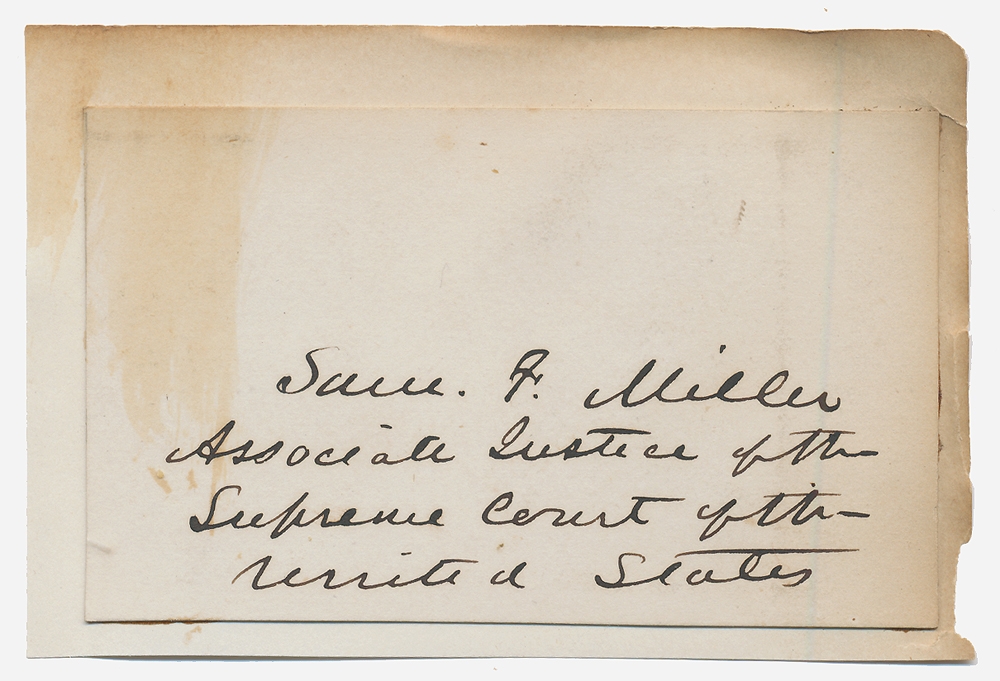 Sam. F. Miller
Associate Justice of the
Supreme Court of the
United States